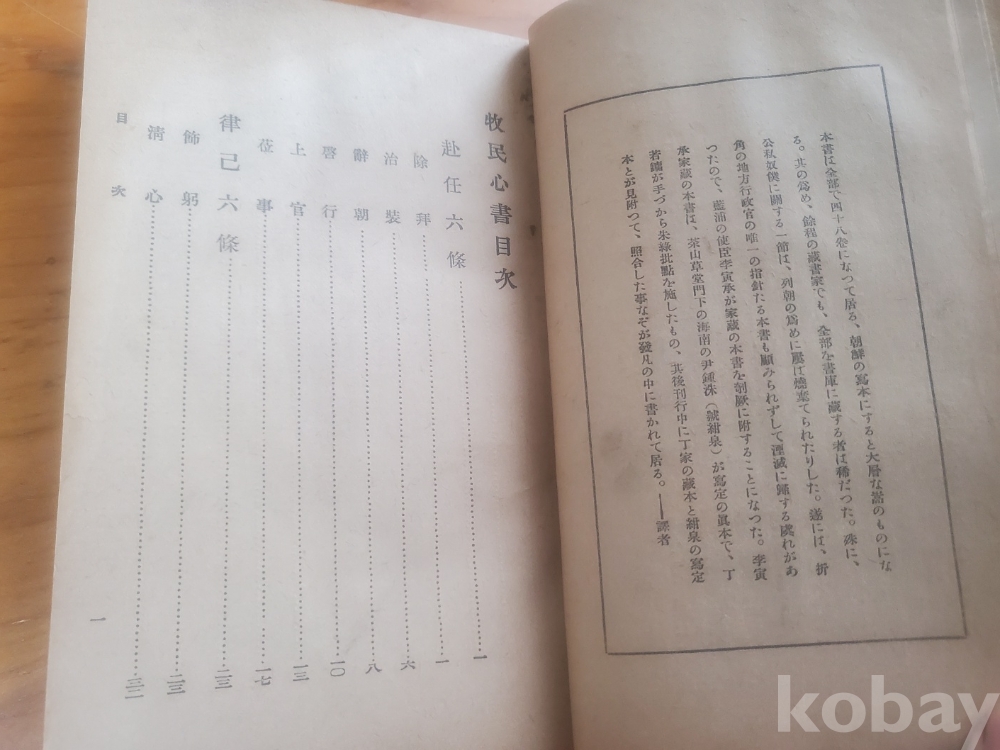 本書は全部で四十八卷になつて居る、朝鮮の寫本にすると大層な嵩のものにな
る。其の爲め、餘程の藏書家でも、全部を書庫に藏する者は稀だつた。殊に、
公私奴僕に關する一節は、列朝の爲めに屢ば燒棄てられたりした。遂には、折
角の地方行政官の唯一の指針たる本書も顧みられずして湮滅に歸する虞れがあ
つたので、藍浦の使臣李寅承が家藏の本書を剞劂に附することになつた。李寅
承家藏の本書は、茶山草堂門下の海南の尹鍾洙(號紺泉)が寫定の眞本で、丁
若鏞が手づから朱綠批點を施したもの、其後刊行中に丁家の藏本と紺泉の寫定
本とが見附つて、照合した事なぞが發凡の中に書かれて居る。――譯者
牧民心書目次
赴任六條……一
除拜……一
治裝……六
辭朝……八
啓行……一〇
上官……一三
莅事……一七
律己六條……二三
飾躬……二三
淸心……三二
目次
一
kobay